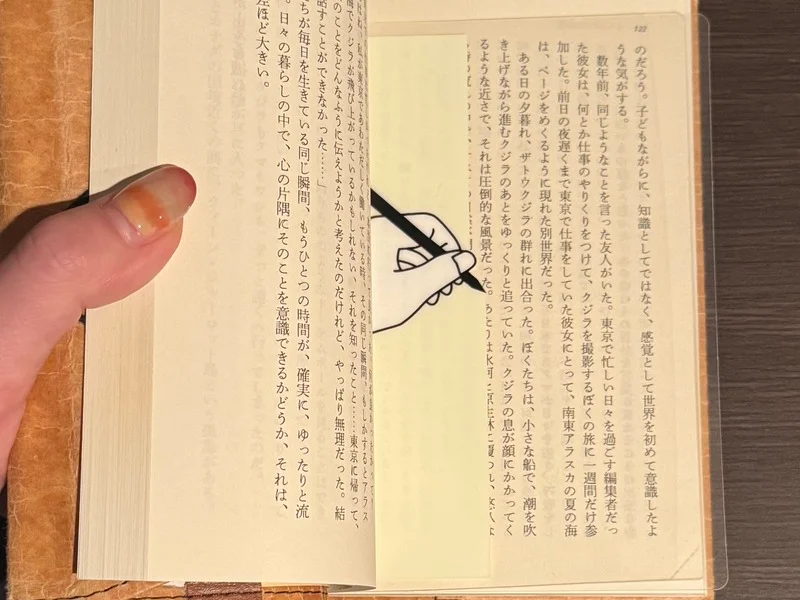 122
のだろう。子どもながらに、知識としてではなく、感覚として世界を初めて意識したよ
うな気がする。
数年前、同じようなことを言った友人がいた。東京で忙しい日々を過ごす編集者だっ
た彼女は、何とか仕事のやりくりをつけて、クジラを撮影するぼくの旅に一週間だけ参
加した。前日の夜遅くまで東京で仕事をしていた彼女にとって、南東アラスカの夏の海
は、ページをめくるように現れた別世界だった。
ある日の夕暮れ、ザトウクジラの群れに出合った。ぼくたちは、小さな船で、潮を吹
き上げながら進むクジラのあとをゆっくりと追っていた。クジラの息が顔にかかってく
るような近さで、それは圧倒的な風景だった。あたりは氷河と原生林に覆われ、悠久な
私が東京であわただしく働いている時、その同じ瞬間、もしかするとアラス
クジラが飛び上がっているかもしれない、それを知ったこと……東京に帰って、
のことをどんなふうに伝えようかと考えたのだけれど、やっぱり無理だった。結
話すことができなかった……」
ちが毎日を生きている同じ瞬間、もうひとつの時間が、確実に、ゆったりと流
日々の暮らしの中で、心の片隅にそのことを意識できるかどうか、それは、
差ほど大きい。